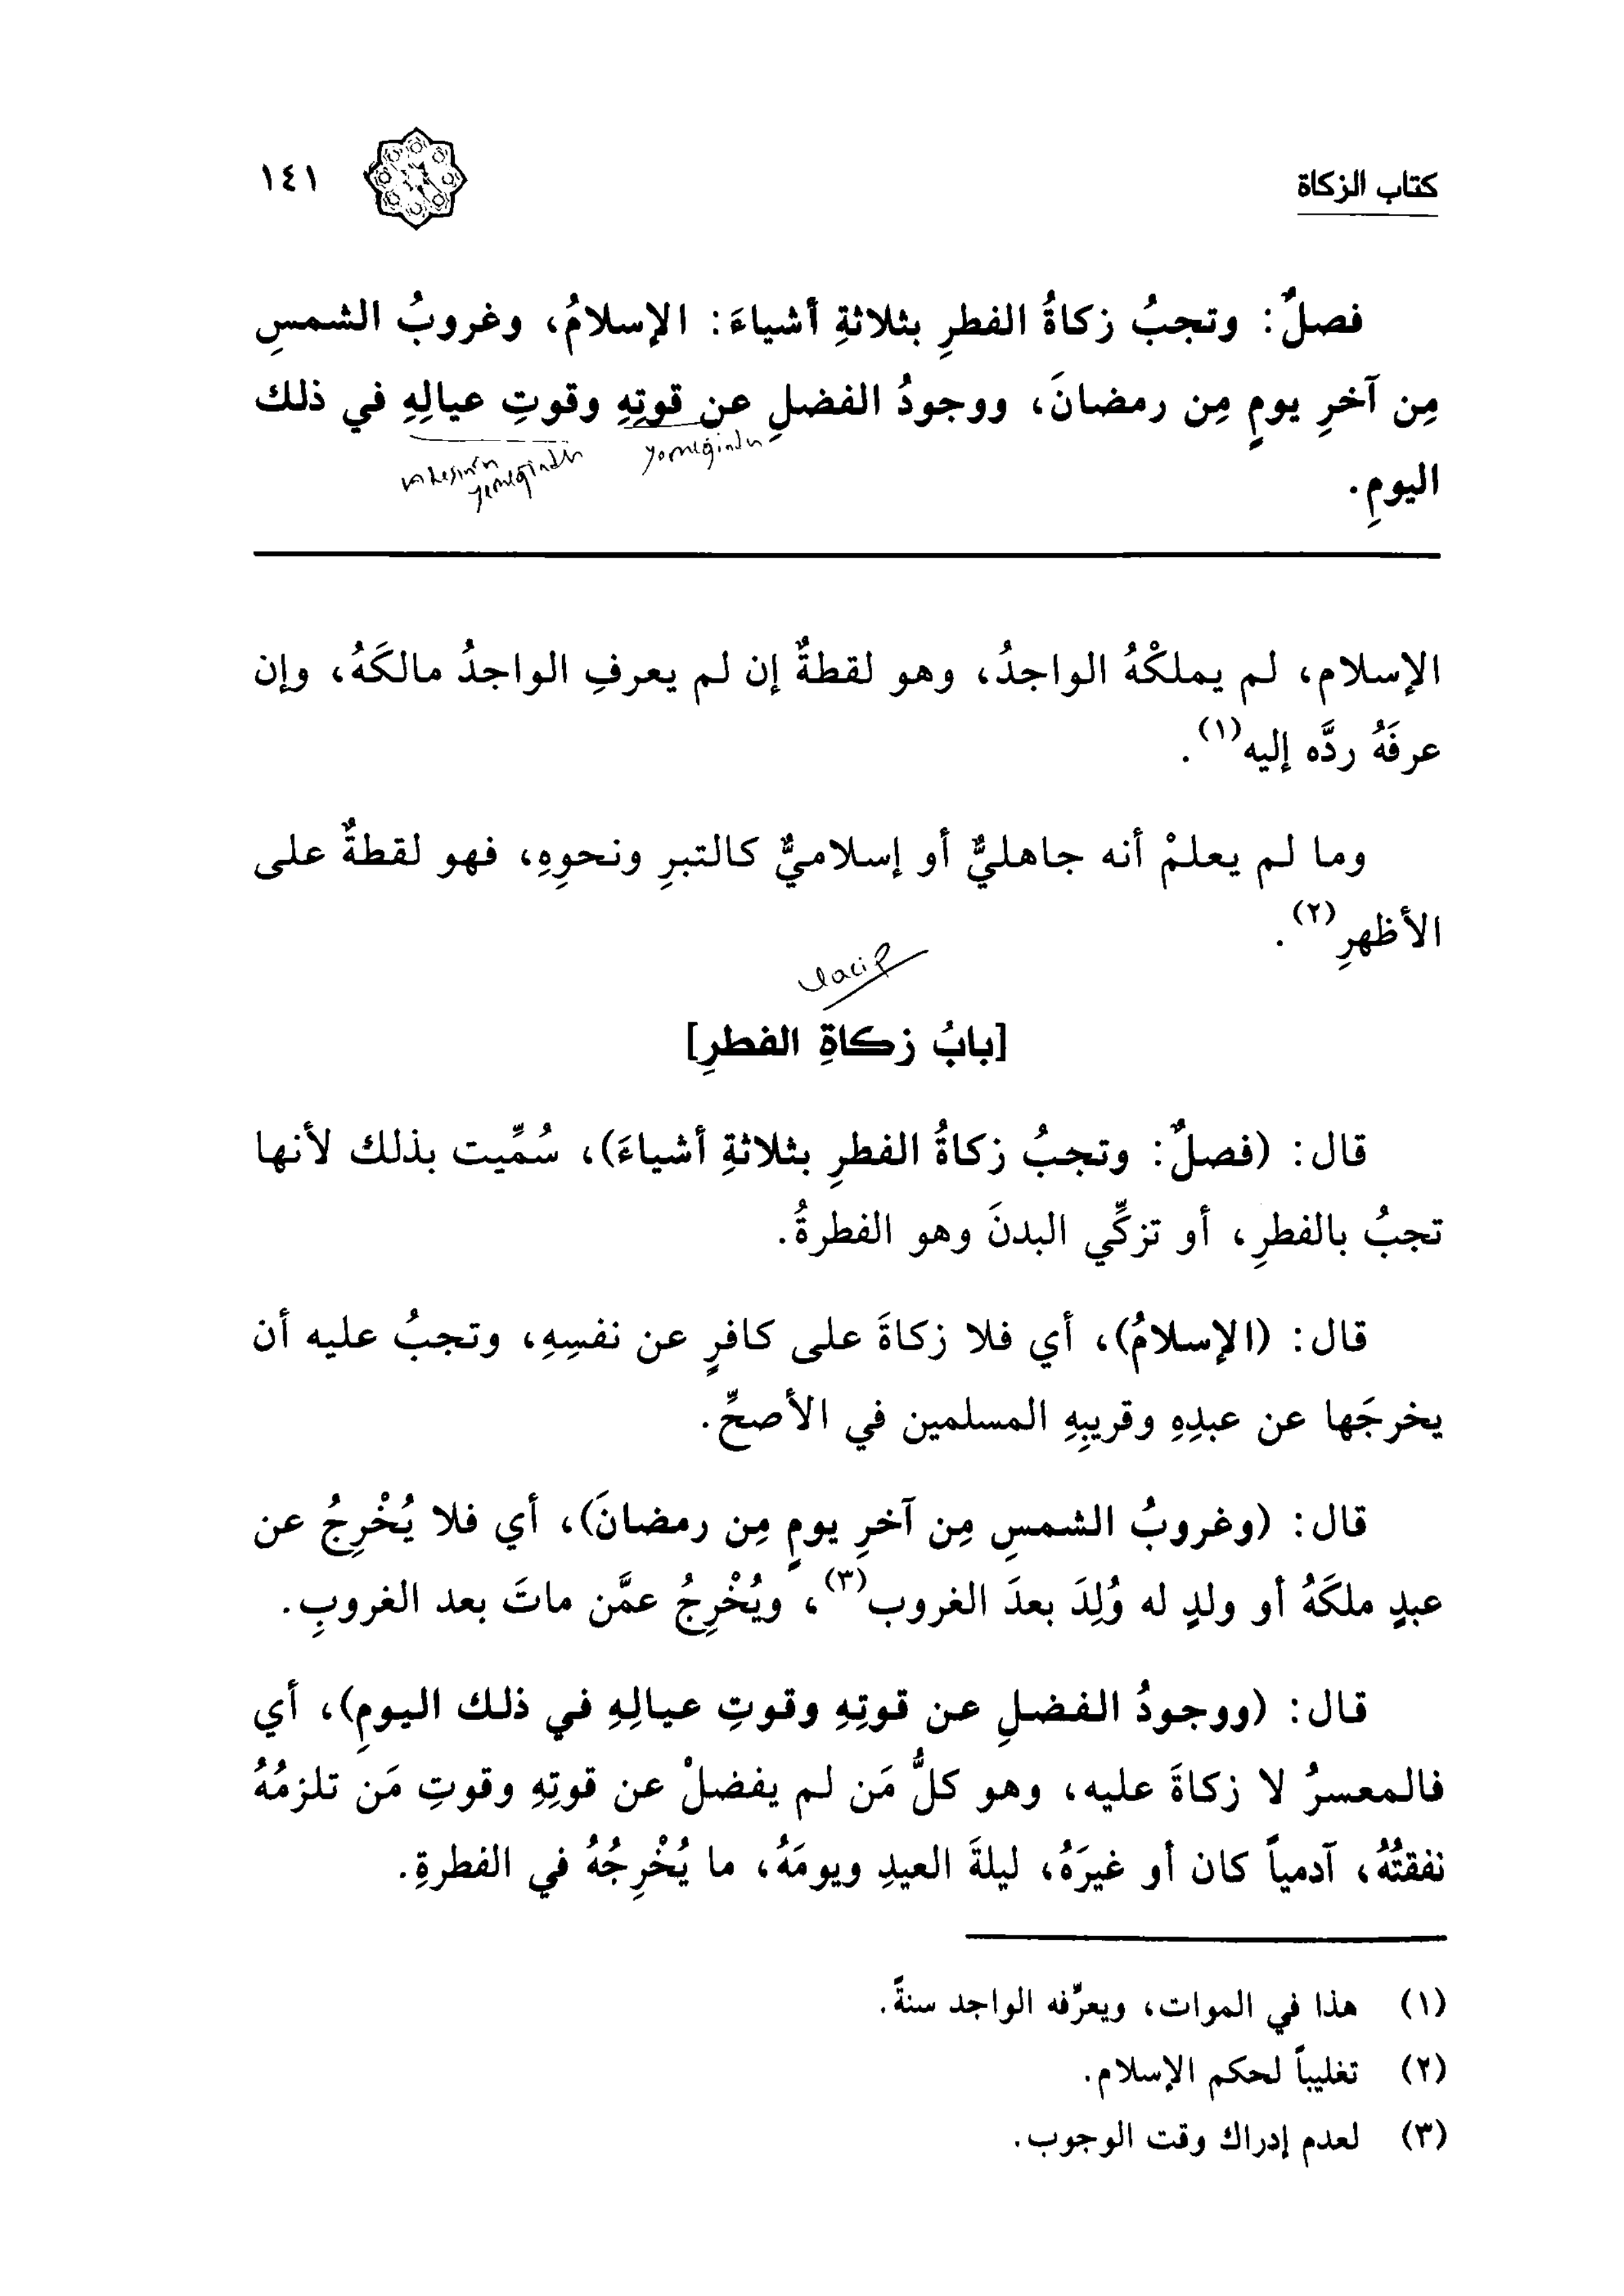 كتاب الزكاة
١٤١
فصلٌ: وتجبُ زكاةُ الفطرِ بثلاثةِ أشياءَ: الإسلامُ، وغروبُ الشمسِ
مِن آخرِ يومٍ مِن رمضانَ، ووجودُ الفضلِ عن قوتِهِ وقوتِ عيالِهِ في ذلك
yemeğinden
yemeğinden
اليومِ.
الإسلام، لم يملكْهُ الواجدُ، وهو لقطةٌ إن لم يعرفِ الواجدُ مالكَهُ، وإن
عرفَهُ ردَّه إليه(١).
وما لم يعلمْ أنه جاهليٌّ أو إسلاميٌّ كالتبرِ ونحوِهِ، فهو لقطةٌ على
الأظهرِ(٢).
[بابُ زكاةِ الفطرِ]
قال: (فصلٌ: وتجبُ زكاةُ الفطرِ بثلاثةِ أشياءَ)، سُمِّيت بذلك لأنها
تجبُ بالفطرِ، أو تزكِّي البدنَ وهو الفطرةُ.
قال: (الإسلامُ)، أي فلا زكاةَ على كافرٍ عن نفسِهِ، وتجبُ عليه أن
يخرجَها عن عبدِهِ وقريبِهِ المسلمين في الأصحِّ.
قال: (وغروبُ الشمسِ مِن آخرِ يومٍ مِن رمضانَ)، أي فلا يُخْرِجُ عن
عبدٍ ملكَهُ أو ولدٍ له وُلِدَ بعدَ الغروب(٣)، ويُخْرِجُ عمَّن ماتَ بعد الغروبِ.
قال: (ووجودُ الفضلِ عن قوتِهِ وقوتِ عيالِهِ في ذلك اليومِ)، أي
فالمعسرُ لا زكاةَ عليه، وهو كلُّ مَن لم يفضلْ عن قوتِهِ وقوتِ مَن تلزمُهُ
نفقتُهُ، آدمياً كان أو غيرَهُ، ليلةَ العيدِ ويومَهُ، ما يُخْرِجُهُ في الفطرةِ.
(١) هذا في الموات، ويعرّفه الواجد سنةً.
(٢) تغليباً لحكم الإسلام.
(٣) لعدم إدراك وقت الوجوب.